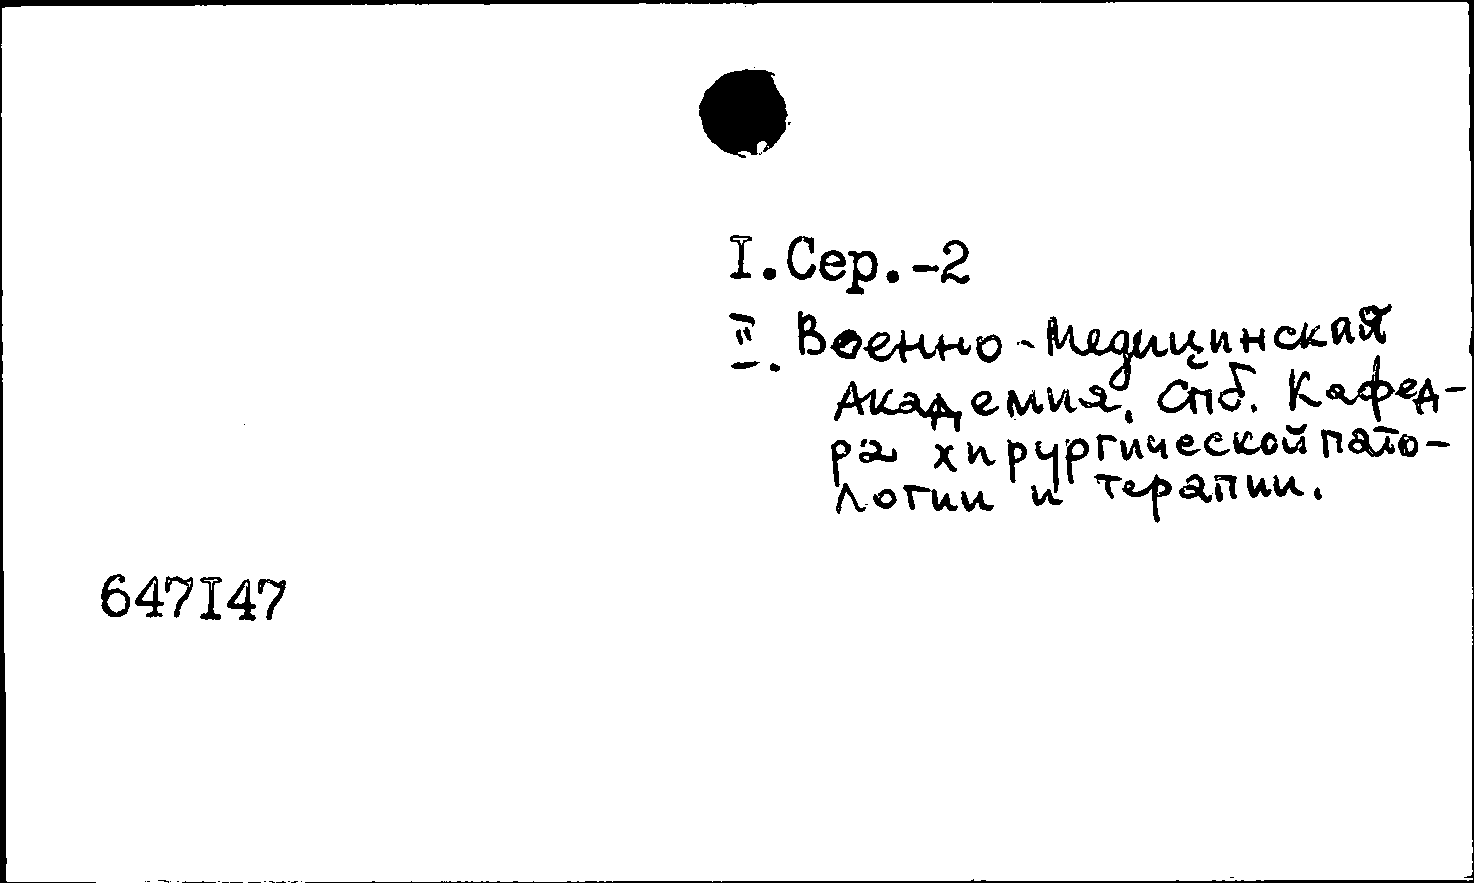 I.Сер.-2
II. Военно-Медицинская
Академия, Спб. Кафед-
ра хирургической пато-
логии и терапии.
647I47